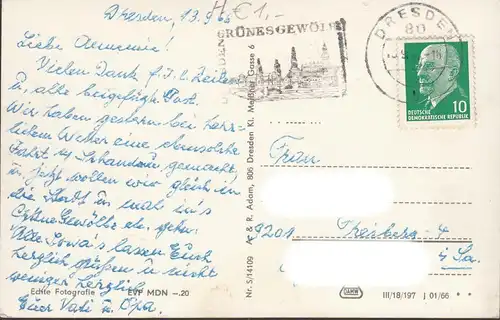 Dresden, 13.9.66
Liebe
Vielen Dank f. I. l. Zeilen
u. alle beigefügte Post.
Wir haben gestern bei herr-
lichem Wetter eine
Fahrt n. Schandau gemacht,
u. jetzt wollen wir gleich in
die Stadt u. mal in's
Grüne Gewölbe gehen.
Alle lassen Euch
herzlich grüßen u. nicht
weniger herzlich
Euer Vati u. Opa.
Echte Fotografie EVP MDN -.20
Nr. S/14109 A. & R. Adam, 806 Dresden Kl. Meißner Gasse 6
€ 1,-
GRÜNES GEWÖLBE
DRESDEN
80
10
DEUTSCHE
DEMOKRATISCHE REPUBLIK
Frau
9201 Freiberg
Sa.
III/18/197 J 01/66 * *